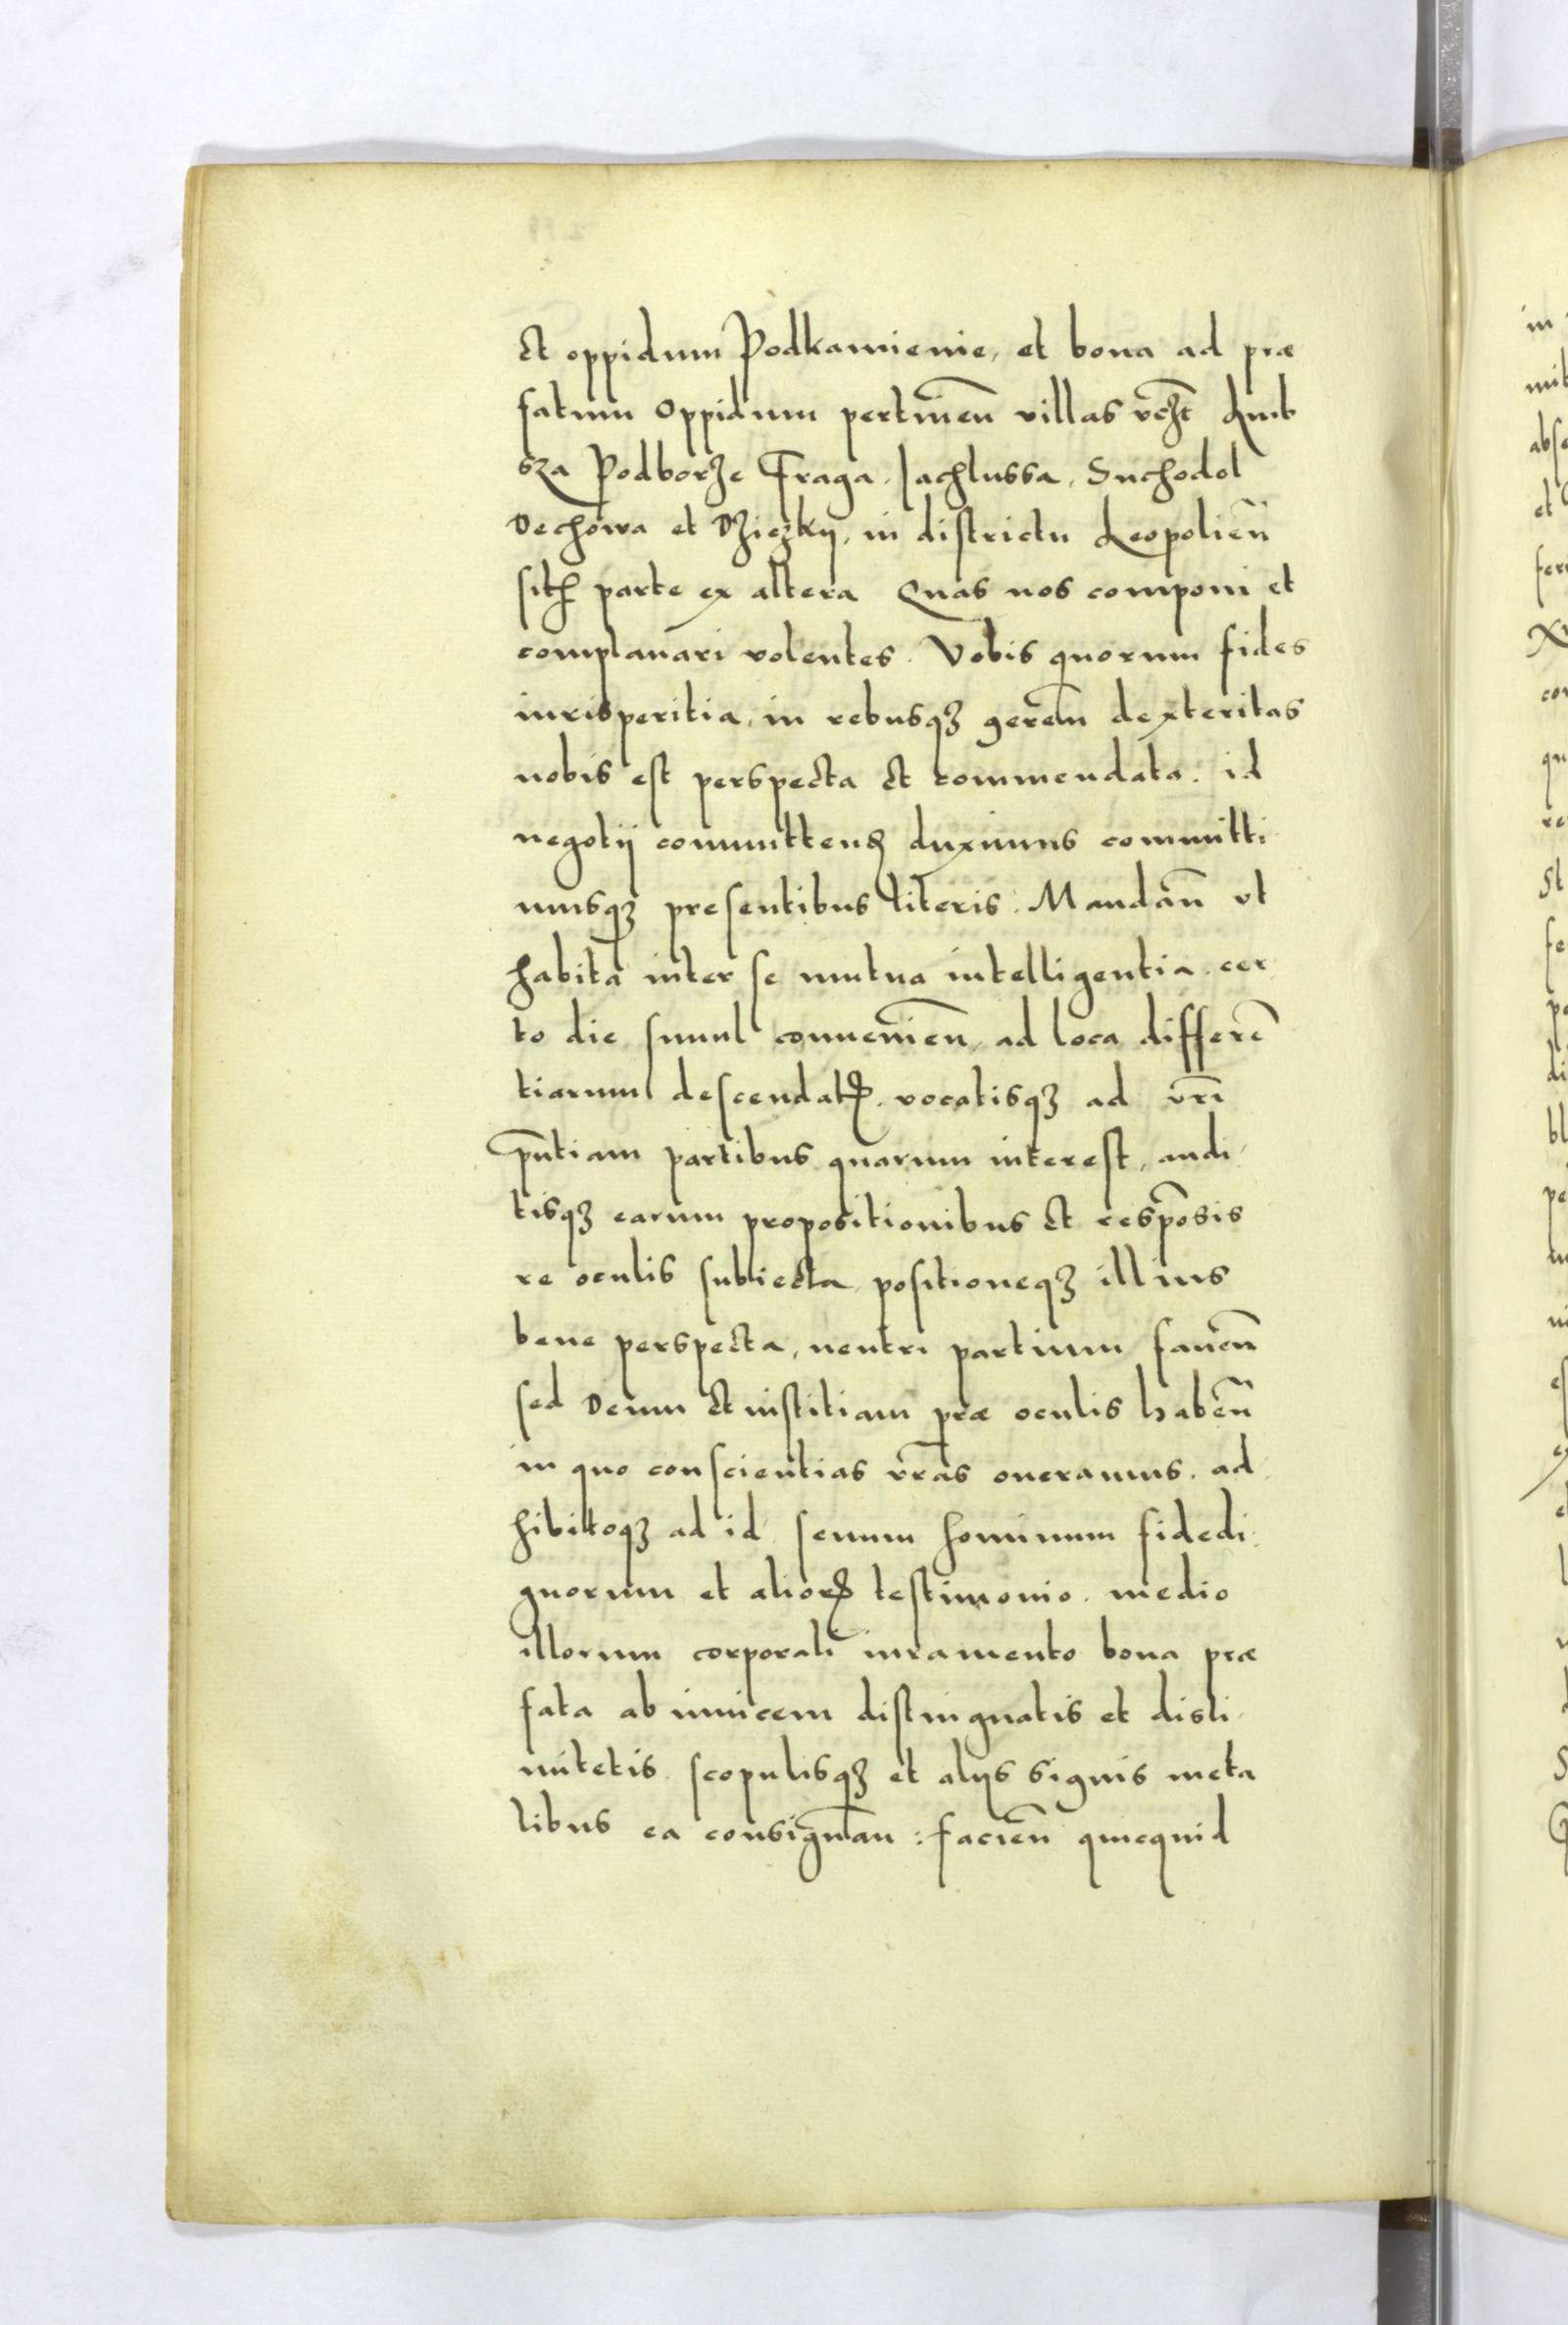 et oppidum Podkamienie, et bona ad præ
fatum Oppidum pertineñ villas vcȝt Lub
sza Podborze Fraga, Jachlussa, Suchodol
Dechowa et Dzieczky, in districtu Leopolieñ
sitꝭ parte ex altera Quas nos componi et
complanari volentes. Vobis quorum fides
iurisperitia, in rebusqȝ gereñ dexteritas
nobis est perspecta et commendata. id
negotij committendꝭ duximus committi
musqȝ presentibus literis. Mandañ vt
habita inter se mutua intelligentia cer
to die simul conuenieñ, ad loca differē
tiarum descendatꝭ. vocatisqȝ ad vr̃i
pn̄tiam partibus quarum interest, audi
tisqȝ earum propositionibus et resp̄osis
re oculis subiecta positioneqȝ illius
bene perspecta, neutri partium faueñ
sed Deum et iustitiam præ oculis habeñ
in quo conscientias vr̃as oneramus. ad
hibitoqȝ ad id senum hominum fidedi
gnorum et aliorꝝ testimonio. medio
illorum corporali iuramento bona præ
fata ab inuicem distinguatis et disli
mitetis scopulisqȝ et alijs signis meta
libus ea consignãn: facieñ quicquid